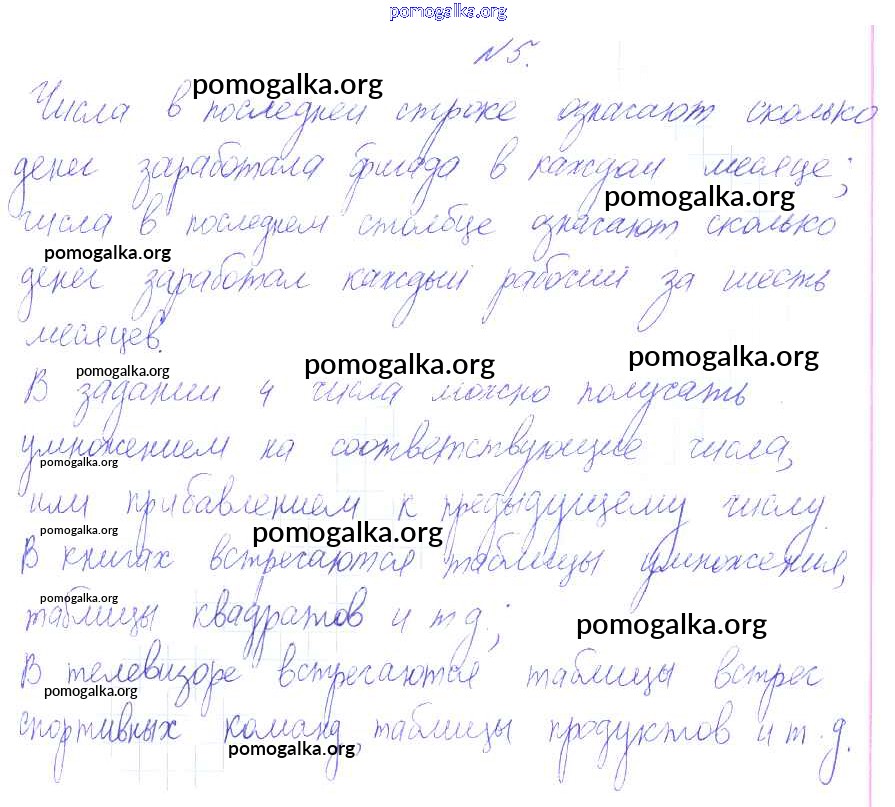 pomogalka.org
№5.
pomogalka.org
Числа в последней строке означают сколько
денег заработала бригада в каждом месяце;
pomogalka.org
числа в последнем столбце означают сколько
pomogalka.org
денег заработал каждый рабочий за шесть
месяцев.
pomogalka.org pomogalka.org pomogalka.org
В задании 4 числа можно получать
умножением на соответствующие числа,
pomogalka.org
или прибавлением к предыдущему числу.
pomogalka.org pomogalka.org
В книгах встречаются таблицы умножения,
pomogalka.org
таблицы квадратов и т д;
pomogalka.org
В телевизоре встречаются таблицы встреч
pomogalka.org
спортивных команд, таблицы продуктов и т.д.
pomogalka.org